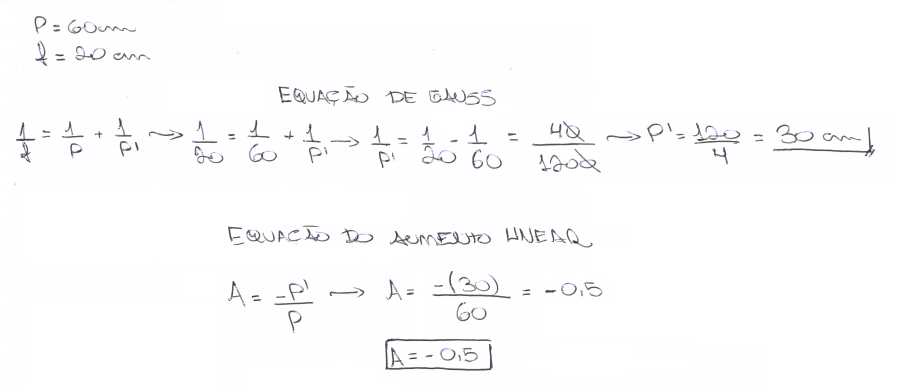 P = 60cm
f = 20 cm
EQUAÇÃO DE GAUSS
1/f = 1/P + 1/P' → 1/20 = 1/60 + 1/P' → 1/P' = 1/20 - 1/60 = 40/1200 → P' = 120/4 = 30 cm
EQUAÇÃO DO AUMENTO LINEAR
A = -P'/P → A = -(30)/60 = -0,5
A = -0,5